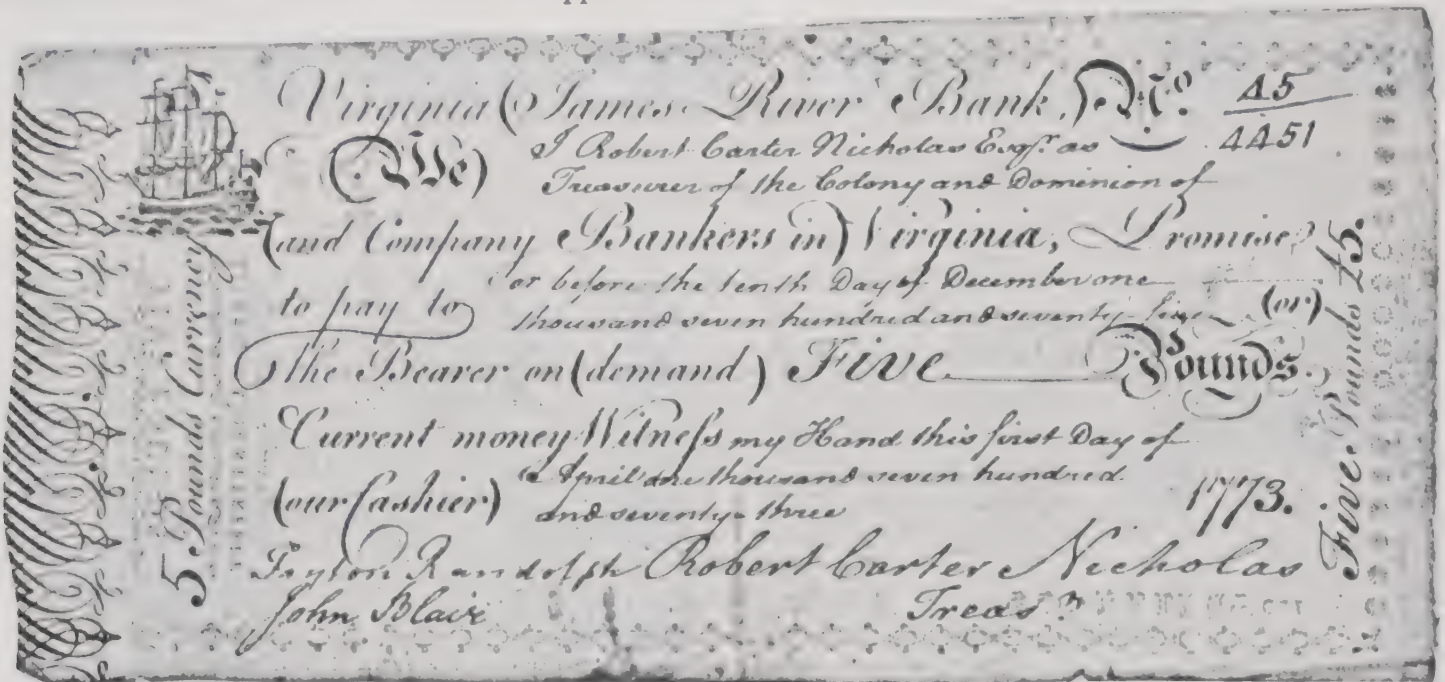 Virginia (James River Bank.) No. 45
4451
(We) I Robert Carter Nicholas Esqr. as
Treasurer of the Colony and Dominion of
(and Company Bankers in) Virginia, Promise
to pay to or before the tenth Day of December one
thousand seven hundred and seventy-five (or)
the Bearer on (demand) Five Pounds.
Current money Witness my Hand this first Day of
(our Cashier) April one thousand seven hundred
and seventy-three 1773.
Peyton Randolph Robert Carter Nicholas
John Blair Treasr.
5 Pounds Currency
Five Pounds